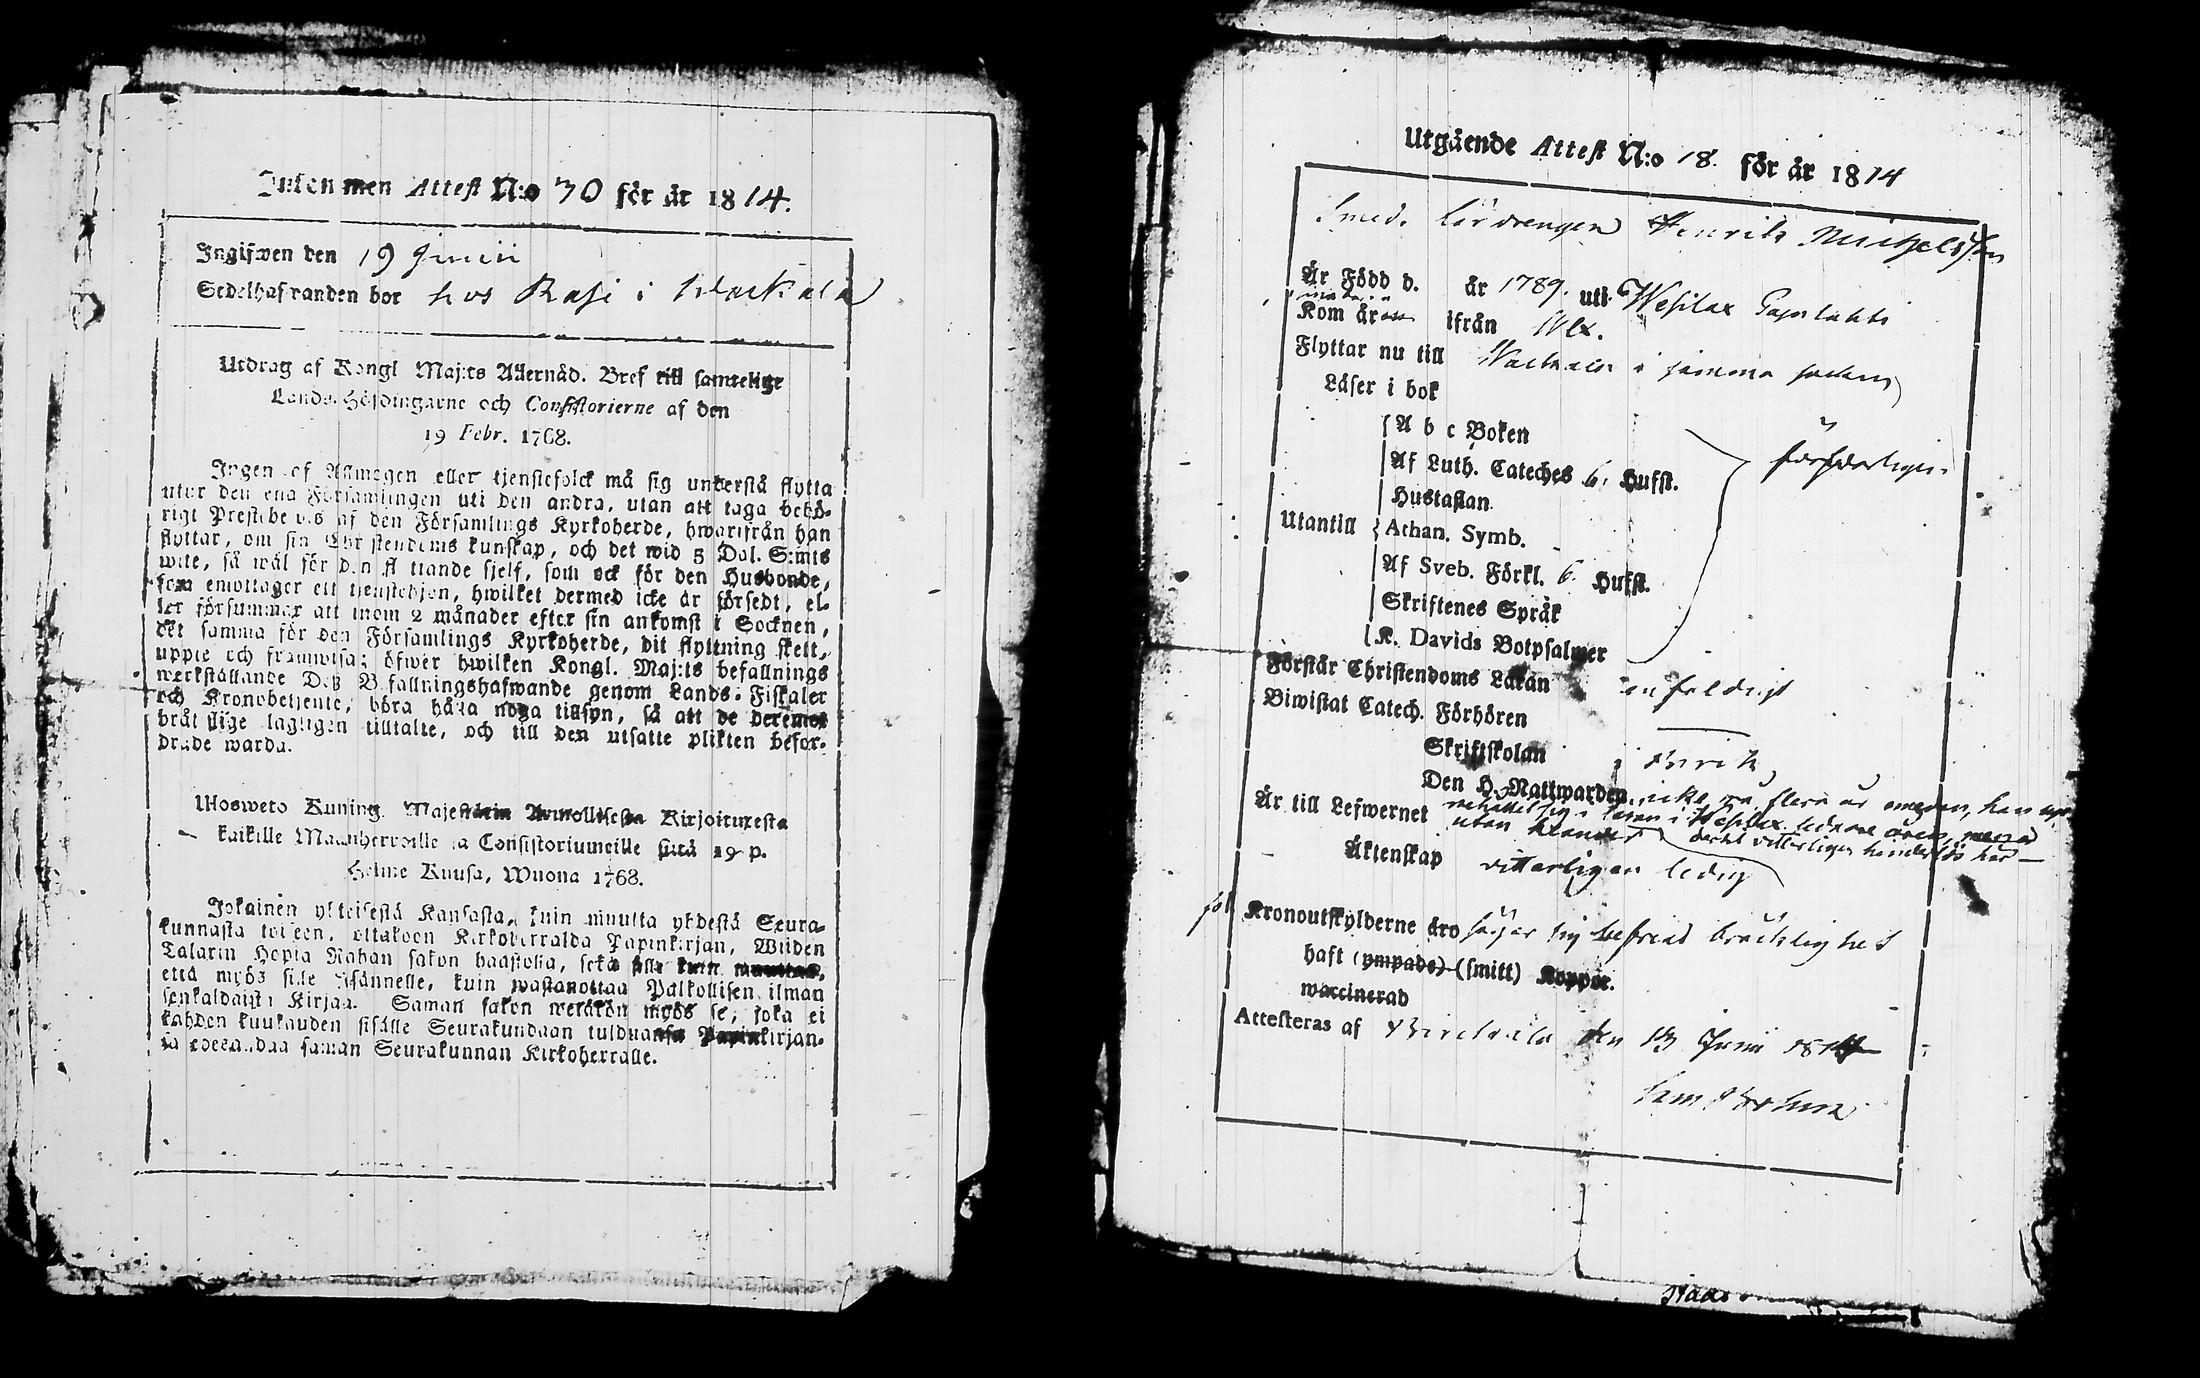 Inkommen Attest N:o 70 för år 1814.
Ingifwen den 19 Junii
Sedelhafwanden bor hos Rasi i
Utdrag af Kongl Maj:ts Allernåd. Bref till samtelige
Lands-Höfdingarne och Consistorierne af den
19 Febr. 1768.
Ingen af Allmogen eller tjenstefolck må sig understå flytta
utur den ena Församlingen uti den andra, utan att taga behö-
rigt Prestbevis af den Församlings Kyrkoherde, hwarifrån han
flyttar, om sin Christendoms kunskap, och det wid 5 Dal. S:mts
wite, så wäl för den flyttande sjelf, som ock för den Husbonde,
som emottager ett tjenstehjon, hwilket dermed icke är försedt, el-
ler försummar att inom 2 månader efter sin ankomst i Socknen,
det samma för den Församlings Kyrkoherde, dit flyttning skett,
uppte och framwisa; öfwer hwilken Kongl. Maj:ts befallnings
werkställande Deß Befallningshafwande genom Lands-Fiskaler
och Kronobetjente, böra hålla noga tillsyn, så att de deremot
bråttslige lagligen tilltalte, och till den utsatte plikten befor-
drade warda.
Ulosweto Kuning. Majestetin Armollisesta Kirjoituxesta
kaikille Maanherroille ja Consistoriumeille siitä 19 p.
Helme Kuusa, Wuona 1768.
Jokainen yhteisestä Kansasta, kuin muutta yhdestä Seura-
kunnasta toiseen, ottakoon Kirkoherralda Papinkirjan, Wiiden
Talarin Hopia Rahan sakon haastolla, sekä sille kuin muuttaa,
että myös sille Isännelle, kuin wastanottaa Palkollisen ilman
senkaldaista Kirjaa. Saman sakon wetäkön myös se, joka ei
kahden kuukauden sisälle Seurakundaan tulduansa Papinkirjan-
sa edesandaa saman Seurakunnan Kirkoherralle.
Utgående Attest N:o 18. för år 1814
Smeds lärdrengen Henrik Michelsson
Är Född d. år 1789. uti Wesilax
Kom år ifrån Wlx.
Flyttar nu till i samma socken
Läser i bok
A b c Boken
Af Luth. Cateches 6. Hufst.
Hustaflan
Utantill Athan. Symb.
Af Sveb. Förkl. 6. Hufst.
Skriftenes Språk
K. Davids Botpsalmer
Förstår Christendoms Läran enfaldigt
Biwistat Catech. Förhören
Skriftskolan
Den H. Nattwarden icke på flera år
Är till Lefwernet utan
Äktenskap vitterligen ledig
Kronoutskylderne äro säger sig befriad bräcklighet
haft (ympade) (smitt) Koppor.
waccinerad
Attesteras af den 13 Junii 1814